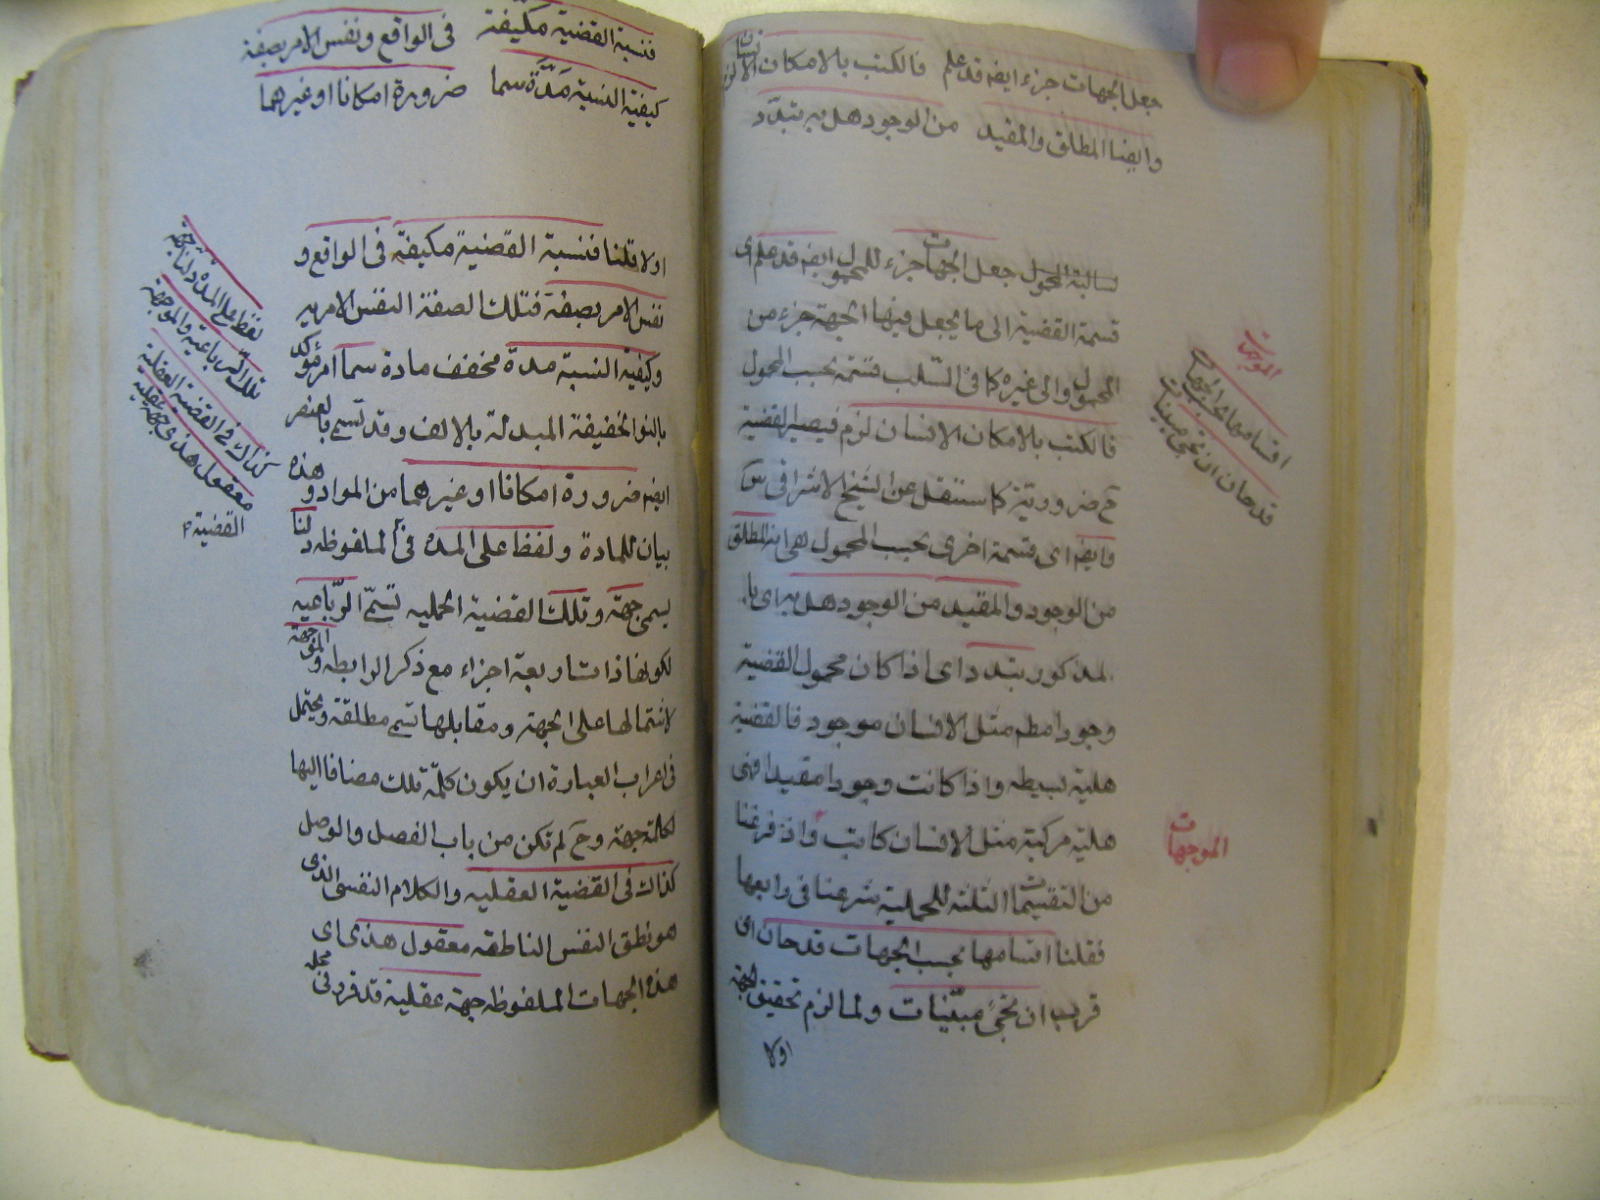 جعل الجهات جزء ايضه قد علم فالكتب بالامكان الانسان لزم
وايضا المطلق والمقيد من الوجود هل به تبدّد
لسالبة المحمول جعل الجهات جزء للمحمول ايضه قد علم اى
قسمة القضية الى ما يجعل فيها الجهة جزء من
المحمول والى غيره كا فى السّلب قسمة بحسب المحمول
فالكتب بالامكان الانسان لزم فيصير القضية
ضرورتية كا سننقل عن الشيخ الاشراقى س
وايضه اى قسمة اخرى بحسب المحمول هى انه المطلق
من الوجود والمقيد من الوجود هل به اى با
لمذكور بتدد اى اذا كان محمول القضية
وجودا مطم مثل الانسان موجود فالقضية
هلية بسيطه واذا كانت وجودا مقيدا فهى
هلية مركبة مثل الانسان كاتب واذ فرغنا
من التقسيمات الثلثة للحملية شرعنا فى رابعها
فقلنا اقسامها بحسب الجهات قد حان اى
قرب ان تجئ مبيّنات ولما لزم تحقيق الجهة
اولا
الموجهات
اقسامها بحسب الجهات
قد حان ان تجئ مبينات
الموجهات
فنسبة القضية مكيّفة فى الواقع ونفس الامر بصفة
كيفية النسبة مَدّة سما ضرورة امكانا او غيرهما
اولا قلنا فنسبة القضية مكيفة فى الواقع و
نفس الامر بصفة فتلك الصفة النفس الامريه
وكيفية النسبة مدة مخفف مادة سما امر مؤكد
بالنوا الخفيفة المبدلة بالالف وقد تسمى بالعنصر
ايضه ضرورة امكانا او غيرهما من المواد وهذه
بيان للمادة ولفظ على المده فى الملفوظه دلنا
يسمى جهة وتلك القضية الحمليه تسمّ الرّباعيه
لكونها ذات اربعة اجزاء مع ذكر الرابطه والموجهة
لاشتمالها على الجهة ومقابلها تسم مطلقة ويحتمل
فى اعراب العبارة ان يكون كلمة تلك مضافا اليها
لكلمة جهة وح لم تكن من باب الفصل والوصل
كذاك فى القضية العقليه والكلام النفسى الذى
هو نطق النفس الناطقه معقول هذى اى
هذه الجهات الملفوظه جهة عقلية قد قرر فى محله
لفظ على المده دلنا جهة
تلك الرباعية والموجهة
كذاك فى القضية العقلية
معقول هذى جهة عقليه
القضية